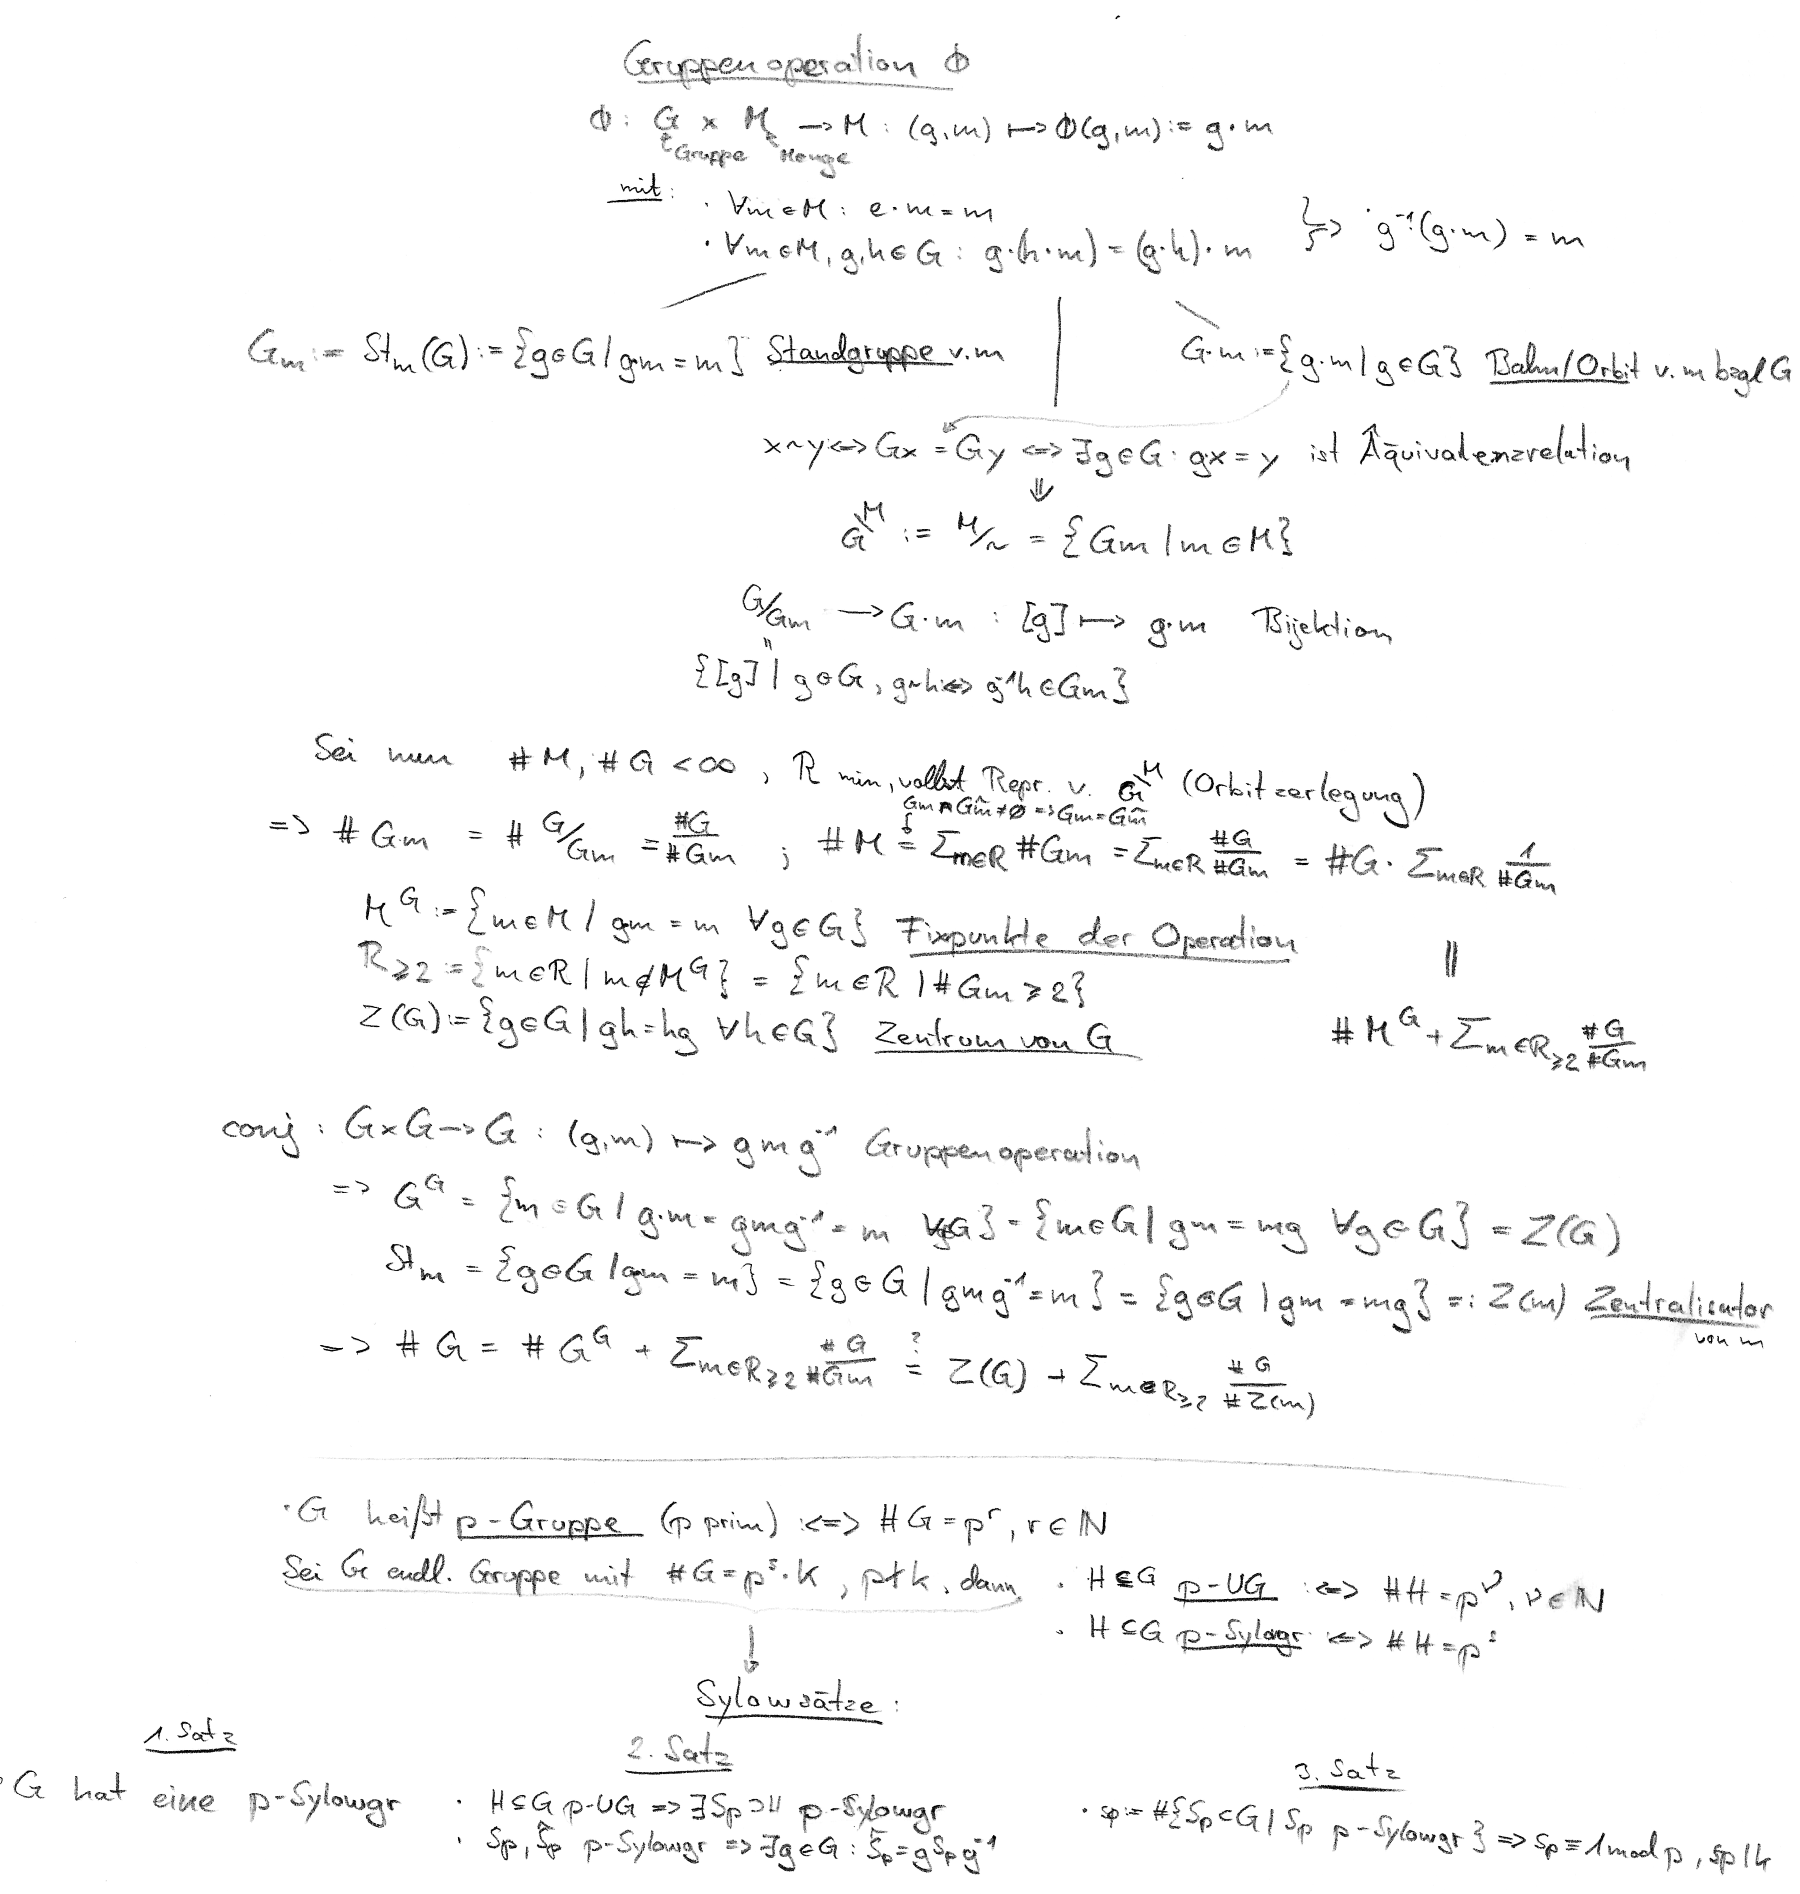 Gruppenoperation Φ
Φ: G × M → M : (g,m) ↦ Φ(g,m) := g·m
Gruppe Menge
mit: · ∀m∈M: e·m=m
· ∀m∈M, g,h∈G: g·(h·m) = (g·h)·m } => g⁻¹·(g·m) = m
G_m := St_m(G) := {g∈G | g·m = m} Standgruppe v. m
G·m := {g·m | g∈G} Bahn/Orbit v. m bzgl G
x~y <=> Gx = Gy <=> ∃g∈G: gx = y ist Äquivalenzrelation
⇓
G\M := M/~ = {Gm | m∈M}
G/G_m → G·m : [g] ↦ g·m Bijektion
=
{[g] | g∈G, g~h <=> g⁻¹h ∈ G_m}
Sei nun #M, #G < ∞, R min, vollst Repr. v. G\M (Orbitzerlegung)
Gm ∩ Gm̃ ≠ ∅ => Gm = Gm̃
=> #G·m = # G/G_m = #G/#G_m ; #M = Σ_{m∈R} #Gm = Σ_{m∈R} #G/#G_m = #G · Σ_{m∈R} 1/#G_m
M^G := {m∈M | gm = m ∀g∈G} Fixpunkte der Operation
R_≥2 := {m∈R | m∉M^G} = {m∈R | #Gm ≥ 2}
=
Z(G) := {g∈G | gh = hg ∀h∈G} Zentrum von G
#M^G + Σ_{m∈R_≥2} #G/#G_m
conj: G×G → G : (g,m) ↦ g m g⁻¹ Gruppenoperation
=> G^G = {m∈G | g·m = gmg⁻¹ = m ∀g∈G} = {m∈G | gm = mg ∀g∈G} = Z(G)
St_m = {g∈G | g·m = m} = {g∈G | gmg⁻¹ = m} = {g∈G | gm = mg} =: Z(m) Zentralisator
von m
=> #G = #G^G + Σ_{m∈R_≥2} #G/#G_m =? Z(G) + Σ_{m∈R_≥2} #G/#Z(m)
· G heißt p-Gruppe (p prim) :<=> #G = p^r, r∈ℕ
Sei G endl. Gruppe mit #G = p^s·k, p∤k, dann
· H⊆G p-UG :<=> #H = p^ν, ν∈ℕ
· H⊆G p-Sylowgr :<=> #H = p^s
Sylowsätze:
1. Satz
· G hat eine p-Sylowgr
2. Satz
· H⊆G p-UG => ∃S_p ⊃ H p-Sylowgr
· S_p, S̃_p p-Sylowgr => ∃g∈G: S̃_p = g S_p g⁻¹
3. Satz
· s_p := #{S_p ⊂ G | S_p p-Sylowgr} => s_p ≡ 1 mod p, s_p | k